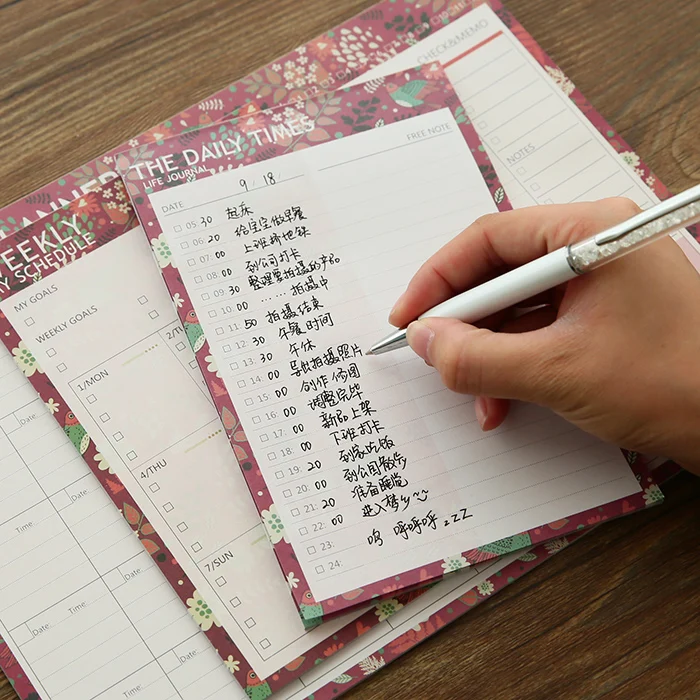 CHECK&MEMO
NOTES
THE DAILY TIMES
LIFE JOURNAL
FREE NOTE
DATE 9 / 18
05:30 起床
06:20 给宝宝做早餐
07:00 上班挤地铁
08:00 到公司打卡
09:30 整理要拍摄的产品
10:00 ……拍摄中
11:50 拍摄结束
12:30 午餐时间
13:30 午休
14:00 导出拍摄照片
15:00 创作修图
16:00 调整完毕
17:00 新品上架
18:00 下班打卡
19:20 到家吃饭
20:00 到公园散步
21:20 准备睡觉
22:00 进入梦乡~
23: 呜 呼呼呼 zZZ
24:
WEEKLY
SCHEDULE
MY GOALS
WEEKLY GOALS
1/MON
4/THU
7/SUN
Date:
Date:
Date:
Time:
Date:
Date:
Time:
Date: